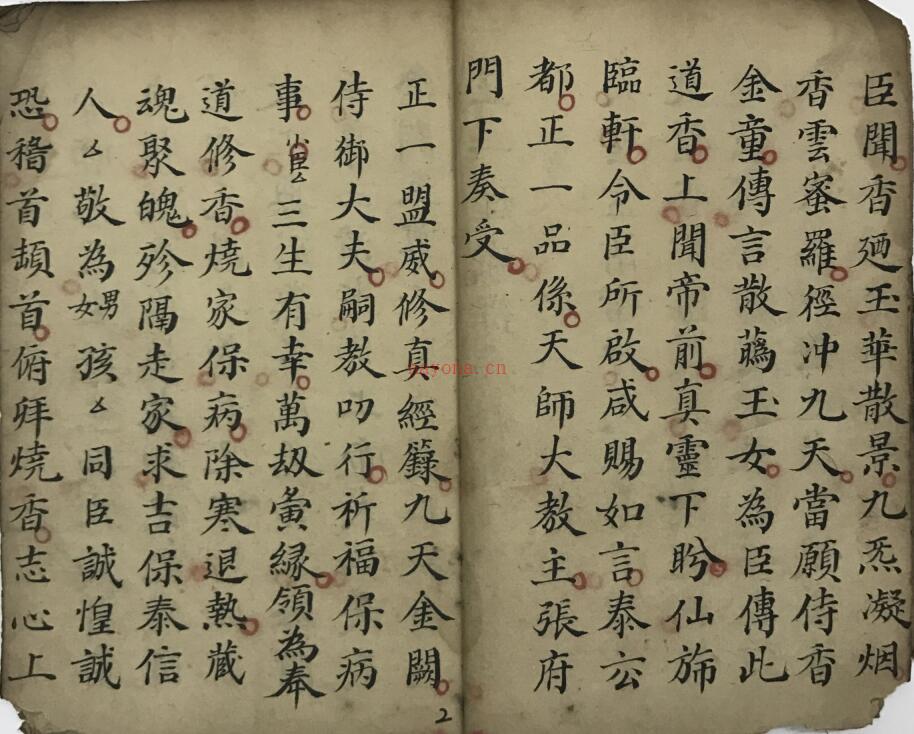 臣聞香廼玉華散景九炁凝烟
香雲蜜羅徑冲九天當願侍香
金童傳言散𬞟玉女為臣傳此
道香上聞帝前真靈下盻仙斾
臨軒令臣所啟咸賜如言泰玄
都正一品係天師大教主張府
門下奏受
正一盟威修真經籙九天金闕
侍御大夫嗣教叨行祈福保病
事小臣厶三生有幸萬刼夤緣領為奉
道修香燒家保病除寒退熱藏
魂聚魄殄隔走家求吉保泰信
人厶敬為男女孩厶同臣誠惶誠
恐稽首頓首俯拜燒香志心上
2
nayona.cn